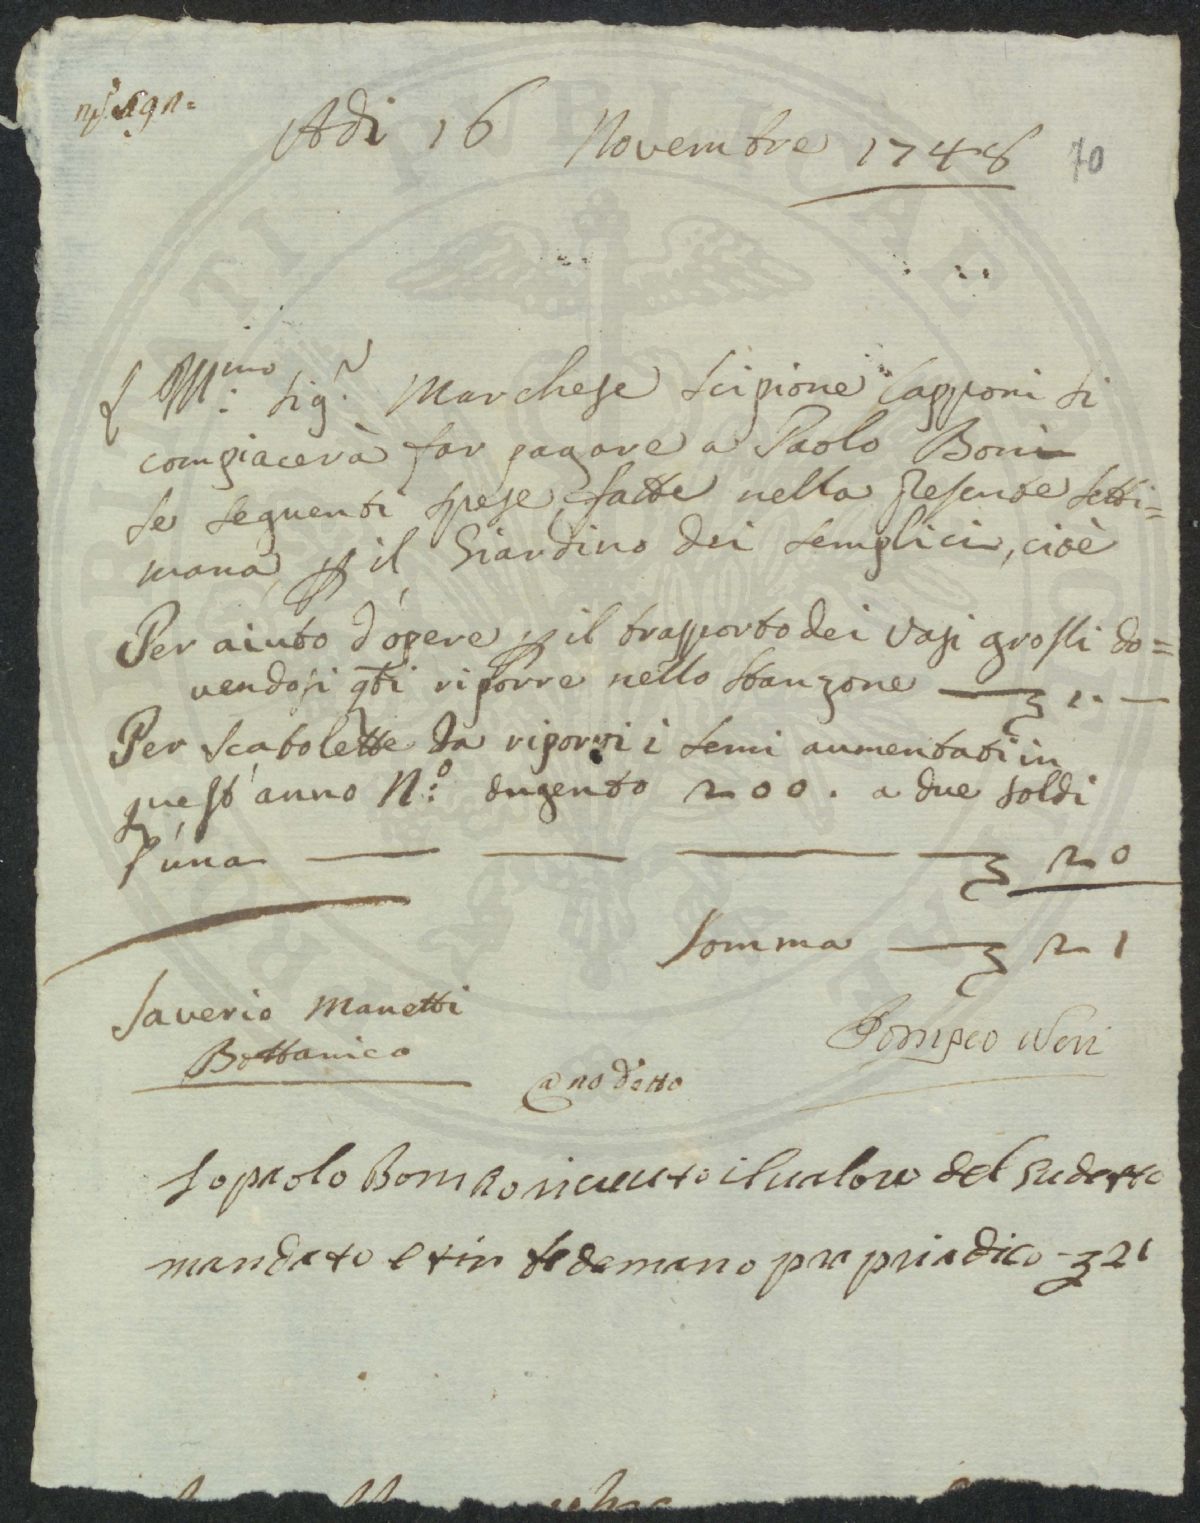 Adi 16 Novembre 1748 70
L'Ill:mo Sig.r Marchese Scipione Capponi si
compiacerà far pagare a Paolo Boni
le seguenti spese fatte nella presente setti=
mana, p il Giardino dei semplici, cioè
Per aiuto d'opere p il trasporto dei Vasi grossi do=
vendosi qti riporre nello stanzone — 1. —
Per Scatolette da riporvi i semi aumentati in
quest'anno N:o dugento 200. a due soldi
l'una — — — — 20
Somma — 21
Saverio Manetti
Bottanico
Pompeo Neri
@no detto
Io paolo Boni ho riceuuto il ualore del sudetto
mandato et in fede mano pro pria dico - 21